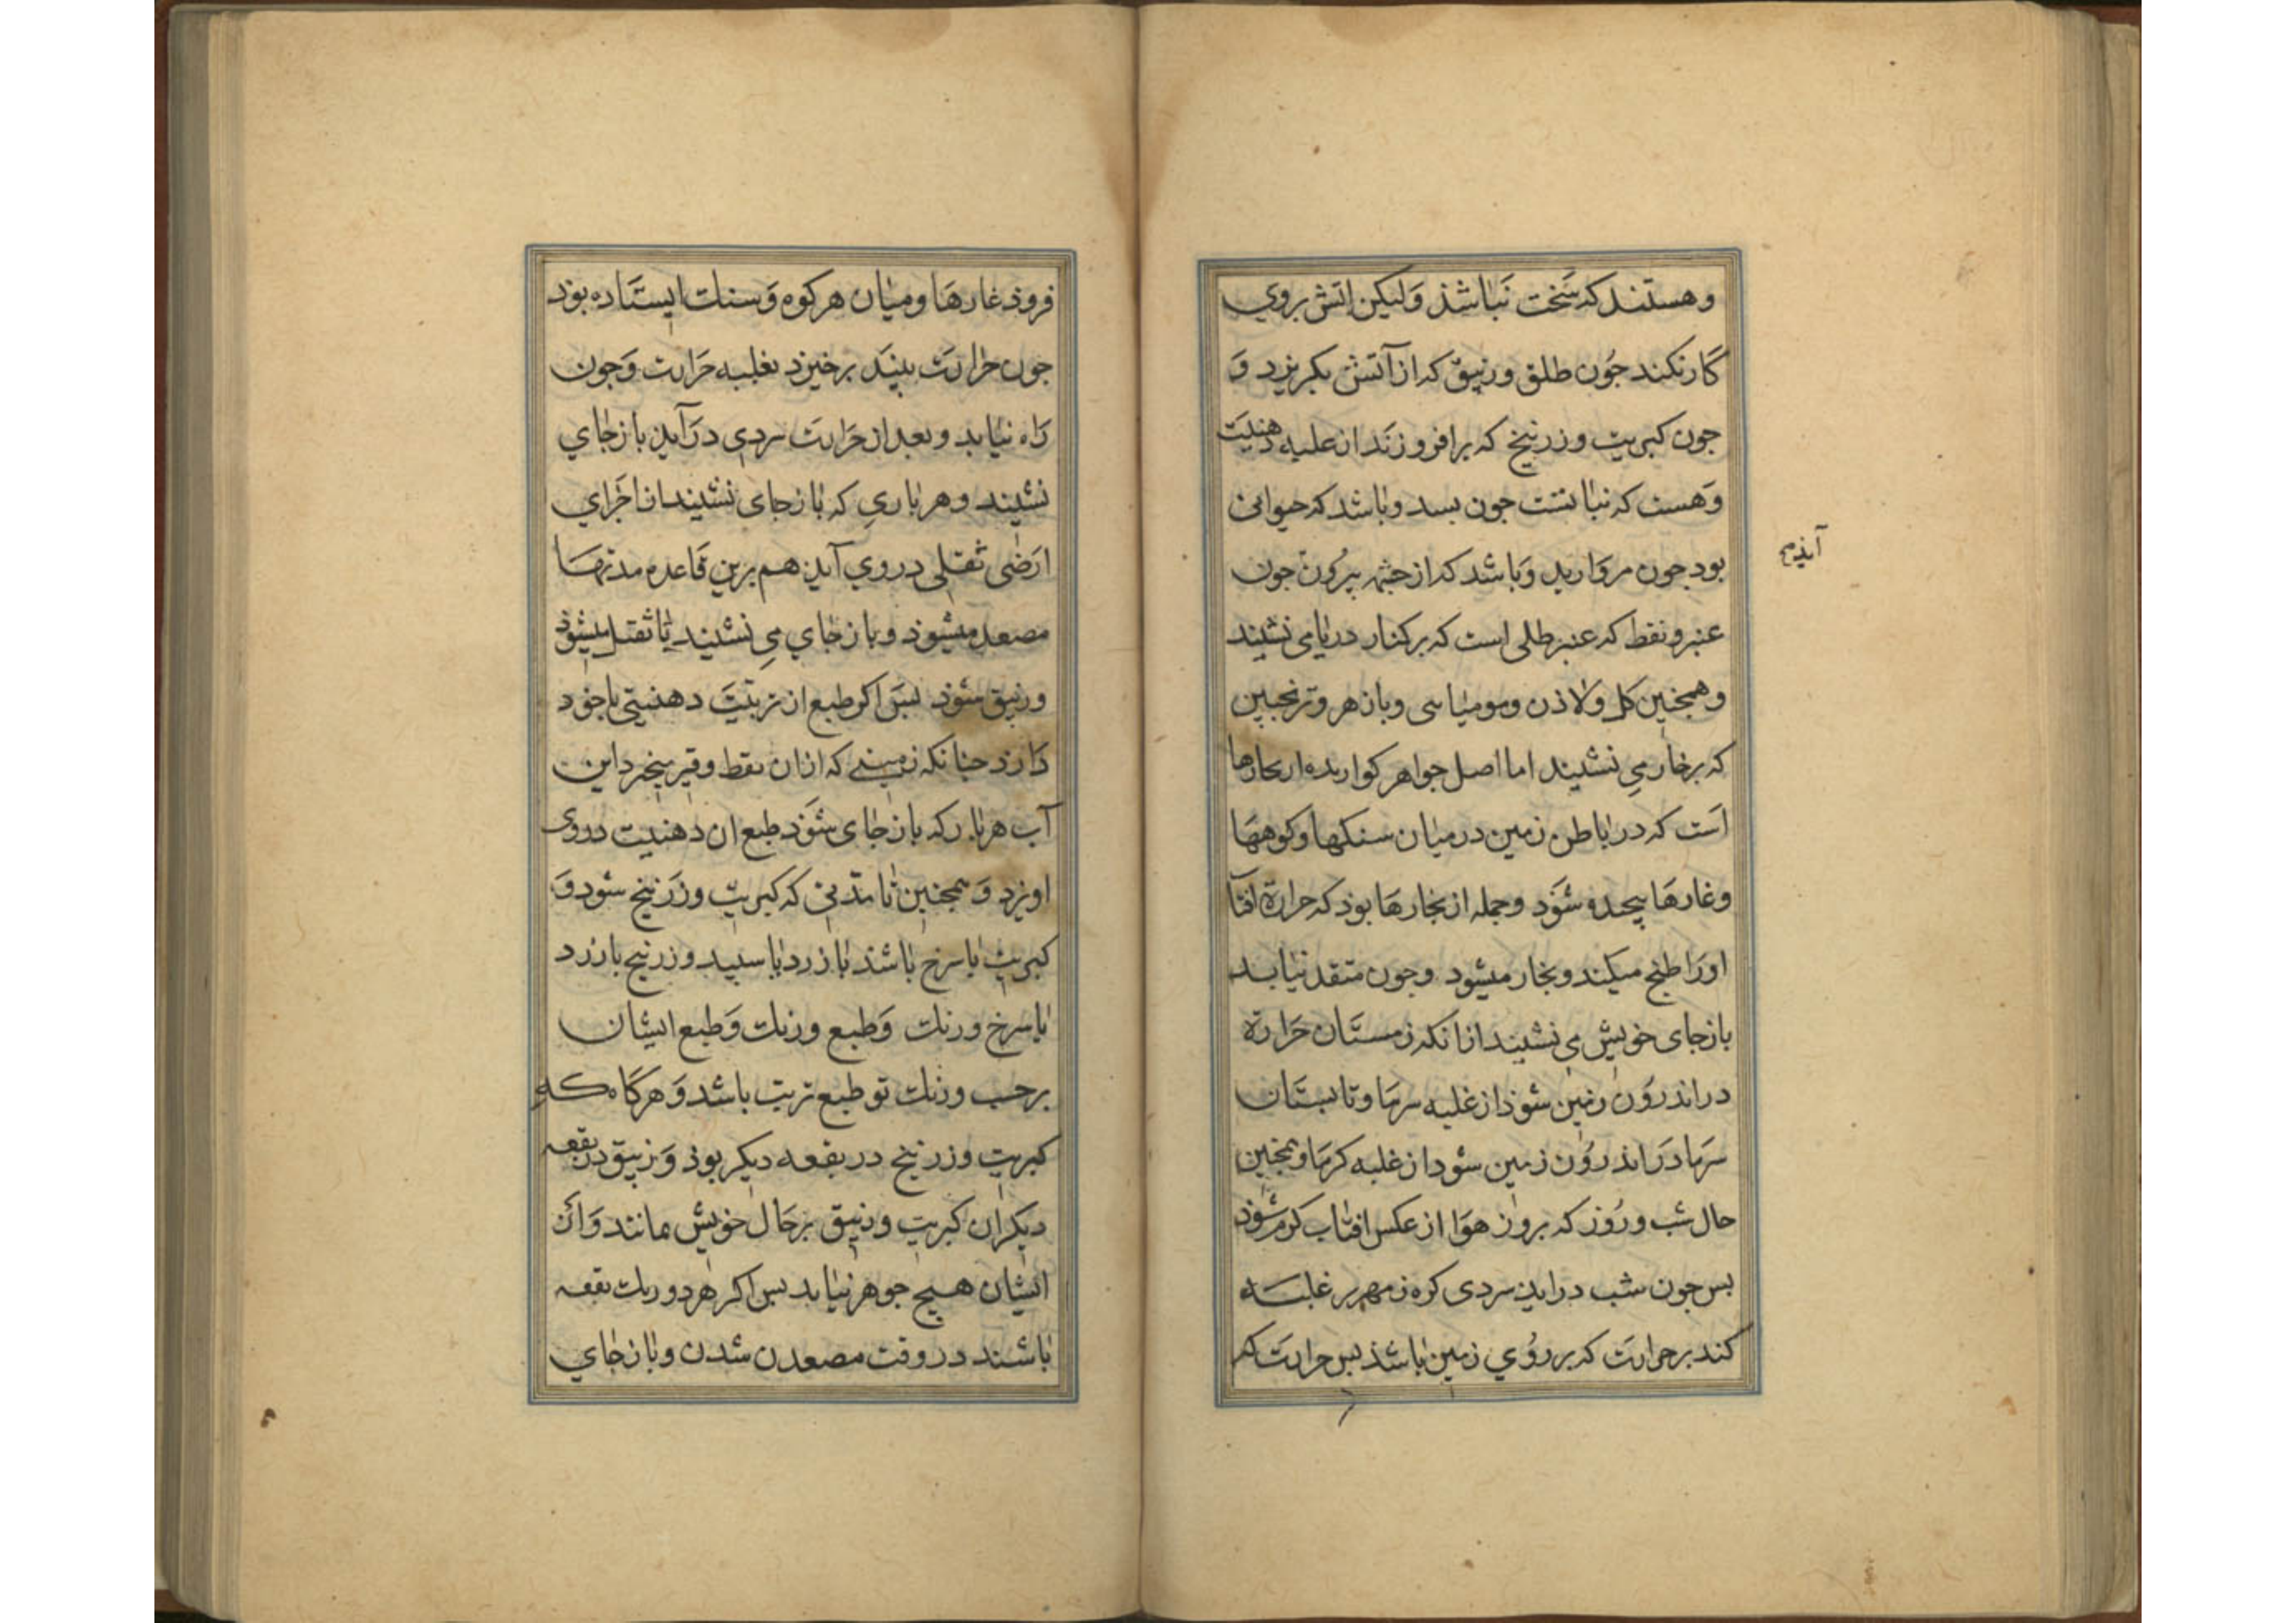 وهستند که سَخت نَباشذ وَلیکن اتش بروي
کَار نکند جُون طلق وزیبق که از آتش بکریزد وَ
جون کبریت وزرنیخ که برافروزنَد از علبه دهنیَت
وَهست که نباتتست جون بسد وباشد که حیوانی
بود جون مروَارید وَباشد که از جشمه بیرُون جون
آیذ صح
عنبر ونفط که عنبر طلی است که برکنار دریا می نشیند
وهمجنین کل ولاذن ومومیایی وبازهر وترنجبین
که برخار مي نشیند اما اصل جواهر کوارنده از بخارها
اَست که در باطن زمین در میان سنکها وکوههَا
وغارهَا بیجیده شوَد وجمله از بخارهَا بوذ که حرارة افتآ
اورَا طبخ میکند وبخار میشود وجون منفد نیابد
بازجای خویش مي نشیند ازانکه زمستَان حَرارة
در اندروُن زمین شوذ از غلبه سرمَا وتابستَان
سَرمَا دَر اندروُن زمین سود از غلبه کرمَا وهمجنین
حال شب ورُوز که بروز هوَا از عکس افتاب کرم شوَذ
بس جون شب دراید سردی کره زمهریر غلبَه
کند برحرارَت که بر روُي زمین باشذ بس حرارَت کم
فروذ غارهَا ومیان هر کوه وَسنك ایستَاده بوذ
جون حَرارَت بینَد برخیزد بغلبه حَرارت وَجون
رَاه نیابد وبعد از حَرارَت سردي درَآید باز جاي
نشیند وهر باري که باز جای نشیند از اجَراي
ارَضی ثقلی دروي آید هم برین قَاعده مدتهَا
مصعد میشوذ وباز جاي مي نشیند تا ثقیل میشوذ
وزیبق شوَذ بسَ اکر طبع ان تربتَ دهنیتی باخوَد
دَارذ جنانکه زمینی که ازان نفط وقیر میخیزد این
آب هر بار که باز جای شوَذ طبع ان دهنیت دروی
اویزد وَهمجنین تا مدّتی که کبریت وزرَنیخ شود وَ
کبریت یا سرخ باشذ یا زرد یا سبید وزرنیخ یا زرد
یا سرخ ورنك وَطبع ورنك وَطبع ایشان
برحسب ورنك تو طبع تربت باشد وَهرکَاه که
کبریت وزرنیخ در بقعه دیکر بوذ وَزیبق در بقعه
دیکران کبریت وزیبق برحَال خویش مانند وَازَ
ایشان هیج جوهر نیاید بس اکر هر دو در یك بقعه
باشند در وقت مصعدن شدن وباز جاي